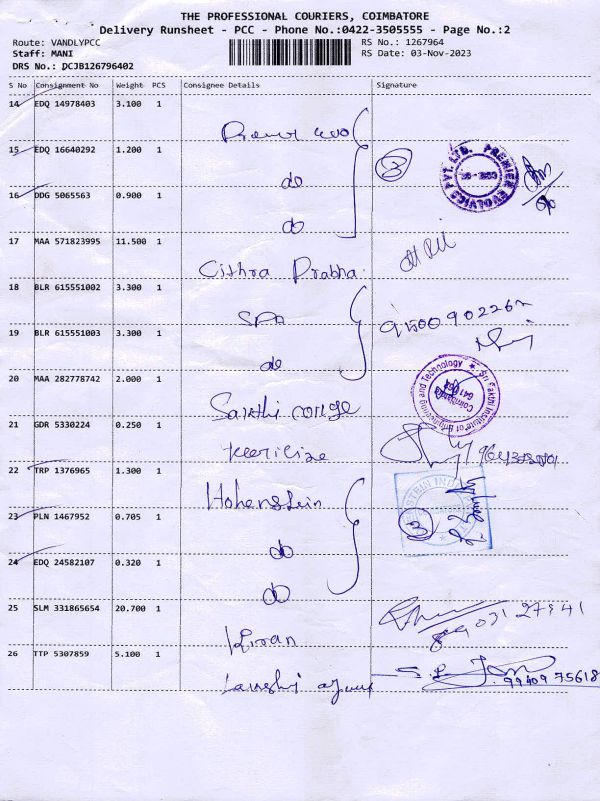 THE PROFESSIONAL COURIERS, COIMBATORE
Delivery Runsheet - PCC - Phone No.:0422-3505555 - Page No.:2
Route: VANDLYPCC RS No.: 1267964
Staff: MANI RS Date: 03-Nov-2023
DRS No.: DCJB126796402
S No Consignment No Weight PCS Consignee Details Signature
14 EDQ 14978403 3.100 1
15 EDQ 16640292 1.200 1
do
3
PREMIER EVOLVICS PVT. LTD.
16 DDG 5065563 0.900 1
do
17 MAA 571823995 11.500 1
Cithra Prabha
18 BLR 615551002 3.300 1
SPA
19 BLR 615551003 3.300 1
do
20 MAA 282778742 2.000 1
Sri Sakthi Institute of Engineering and Technology
Coimbatore
Sakthi college
21 GDR 5330224 0.250 1
22 TRP 1376965 1.300 1
Hohenstein
23 PLN 1467952 0.705 1
3
do
24 EDQ 24582107 0.320 1
do
25 SLM 331865654 20.700 1
Kiran
26 TTP 5307859 5.100 1
99409 75618